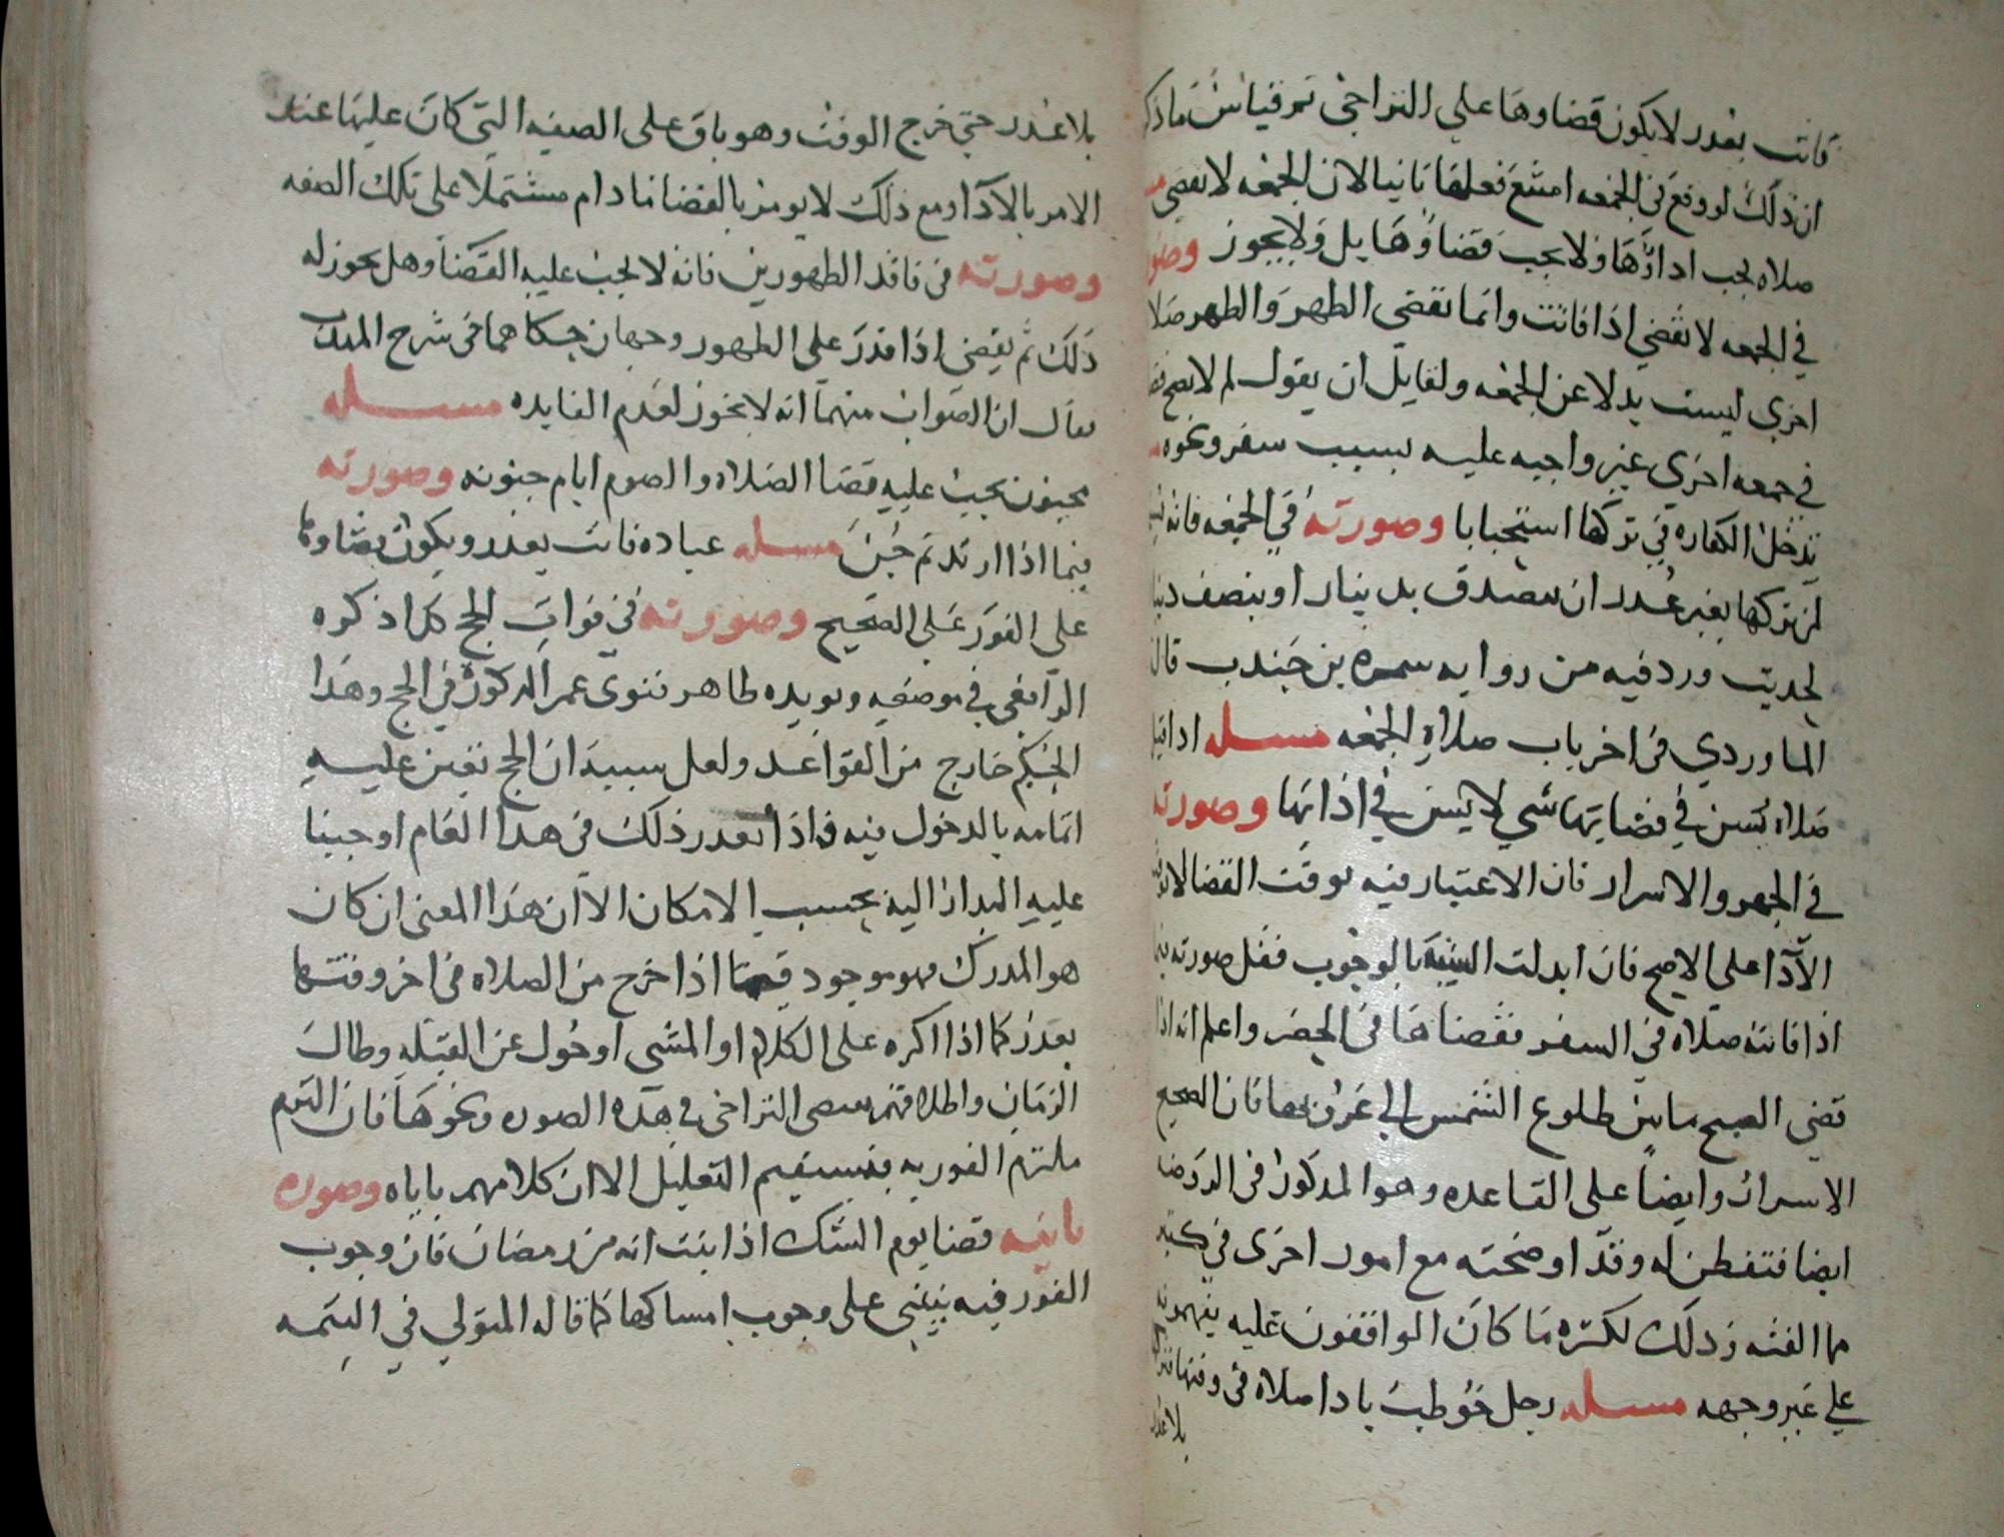 فاتت بعذر لا يكون قضاوها على التراخي ثم قياس ما ذكر
ان ذلك لو وقع في الجمعه امتنع فعلها ثانيا لان الجمعه لا تقضى
صلاه يجب اداؤها ولا يجب قضاؤها بل ولا يجوز وصور
في الجمعه لا تقضي اذا فاتت وانما تقضى الظهر والظهر صلا
اخرى ليست بدلا عن الجمعه ولقايل ان يقول لم لا يصح
في جمعه اخرى غير واجبه عليه بسبب سفر ونحوه
تدخل الكفاره في تركها استحبابا وصورته في الجمعه فانه
لمن تركها بغير عذر ان يتصدق بدينار او بنصف دينا
لحديث ورد فيه من روايه سمره بن جندب قال
الماوردي في اخر باب صلاه الجمعه مسله اذا
صلاه يسن في قضايها شي لا يسن في ادايها وصورته
في الجهر والاسرار فان الاعتبار فيه بوقت القضا لا
الادا على الاصح فان ابدلت السنيه بالوجوب فقل صورته
اذا فاتته صلاه في السفر فقضاها في الحضر واعلم انه اذا
قضى الصبح ما بين طلوع الشمس الى غروبها فان الصحيح
الاسرار وايضا على القاعده وهو المذكور في الروضه
ايضا فتفطن له وقد اوضحته مع امور اخرى في كتبه
مما الفته وذلك لكثره ما كان الواقفون عليه يفهمونه
على غير وجهه مسله رجل خوطب بادا صلاه في وقتها
بلا عذر
بلا عذر حتى خرج الوقت وهو باق على الصفه التي كان عليها عند
الامر بالادا ومع ذلك لا يومر بالقضا ما دام مشتملا على تلك الصفه
وصورته في فاقد الطهورين فانه لا يجب عليه القضا وهل يجوز له
ذلك ثم يقضى اذا قدر على الطهور وجهان حكاهما في شرح المهذب
وقال ان الصواب منهما انه لا يجوز لعدم الفايده مسله
مجنون يجب عليه قضا الصلاه والصوم ايام جنونه وصورته
فيما اذا ارتد ثم جن مسله عباده فاتت بعذر ويكون قضاوها
على الفور على الصحيح وصورته في فوات الحج كما ذكره
الرافعي في موضعه ويويده ظاهر فتوى عمر المذكور في الحج وهذا
الحكم خارج من القواعد ولعل سببه ان الحج تعين عليه
اتمامه بالدخول فيه فاذا تعذر ذلك في هذا العام اوجبنا
عليه البدار اليه بحسب الامكان الا ان هذا المعنى ان كان
هو المدرك فهو موجود فيما اذا خرج من الصلاه في اخر وقتها
بعذر كما اذا اكره على الكلام او المشي او حول عن القبله وطال
الزمان واطلاقهم يقتضى التراخي في هذه الصوره ونحوها فان التزم
ملتزم الفوريه فيستقيم التعليل الا ان كلامهم ياباه وصوره
ثانيه قضا يوم الشك اذا ثبت انه من رمضان فان وجوب
الفور فيه ينبني على وجوب امساكها كما قاله المتولي في التتمه